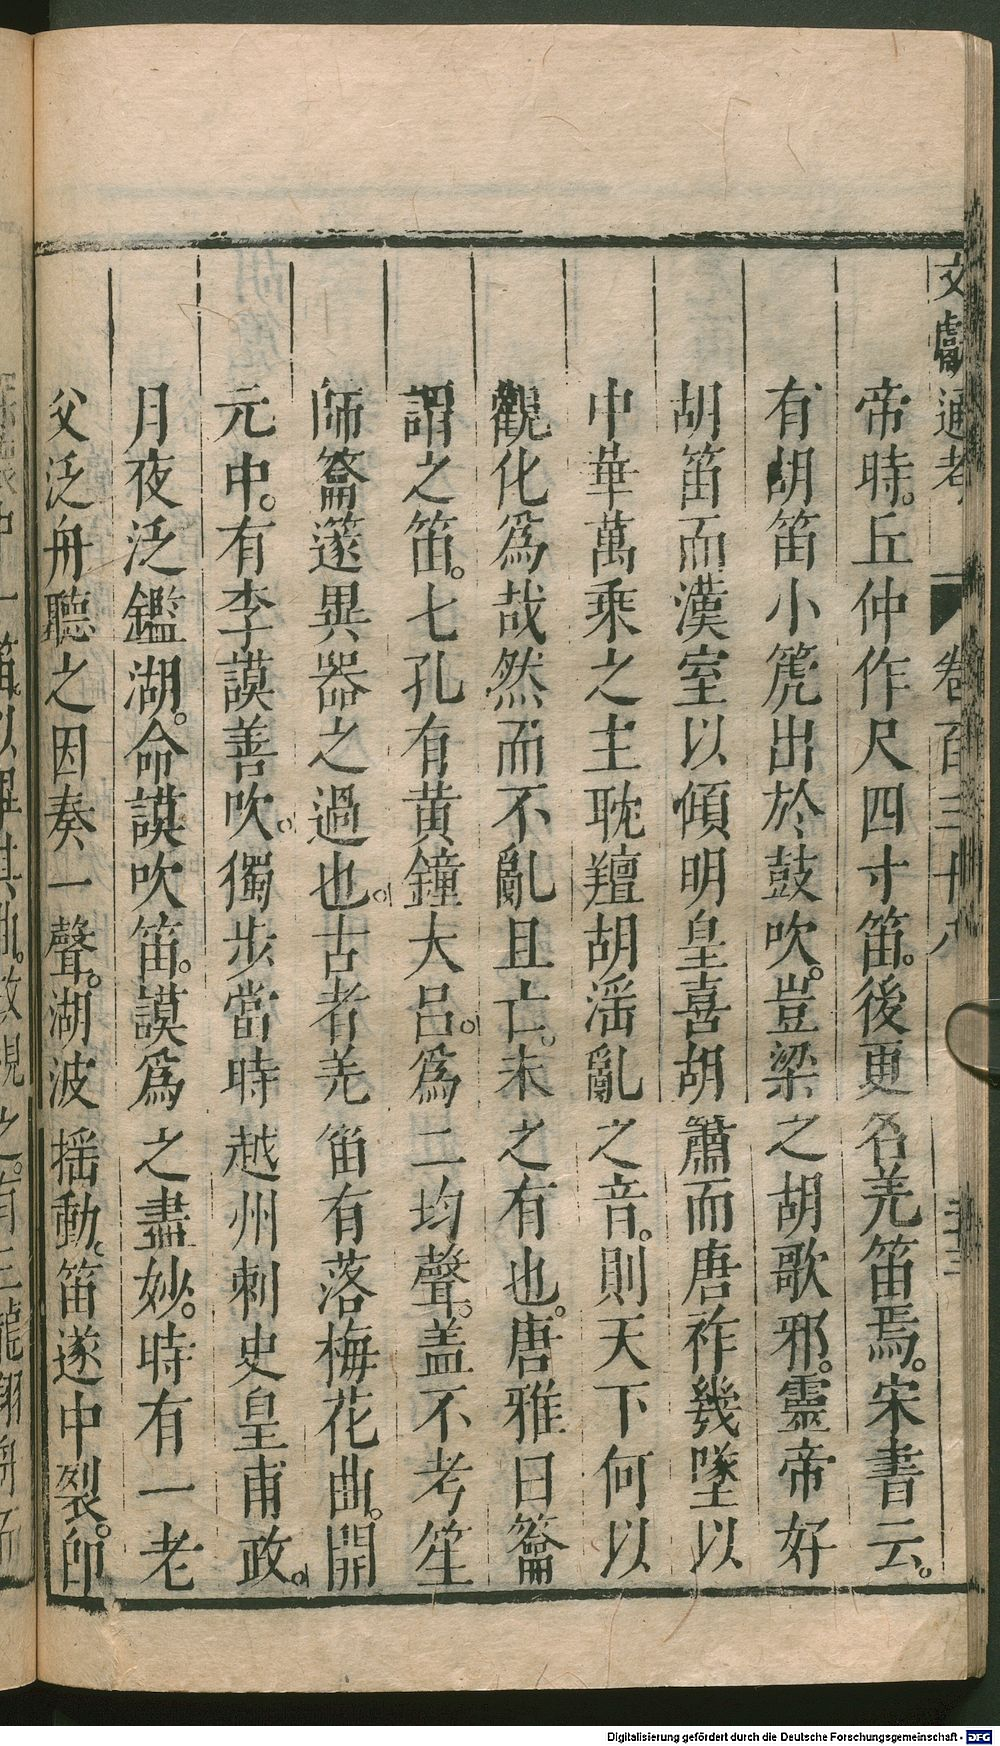 文獻通考 卷百三十八 三十三
帝時。丘仲作尺四寸笛。後更名羌笛焉。宋書云。
有胡笛小篪出於鼓吹。豈梁之胡歌邪。靈帝好
胡笛而漢室以傾明皇喜胡簫而唐祚幾墜以
中華萬乘之主耽羶胡滛亂之音。則天下何以
觀化爲哉然而不亂且亡。未之有也。唐雅曰籥
謂之笛。七孔有黃鐘大呂。爲二均聲。盖不考笙
師籥篴異器之過也。古者羌笛有落梅花曲。開
元中。有李謨善吹。獨步當時越州刺史皇甫政。
月夜泛鑑湖。命謨吹笛。謨爲之盡妙。時有一老
父泛舟聽之因奏一聲。湖波揺動。笛遂中裂。卽